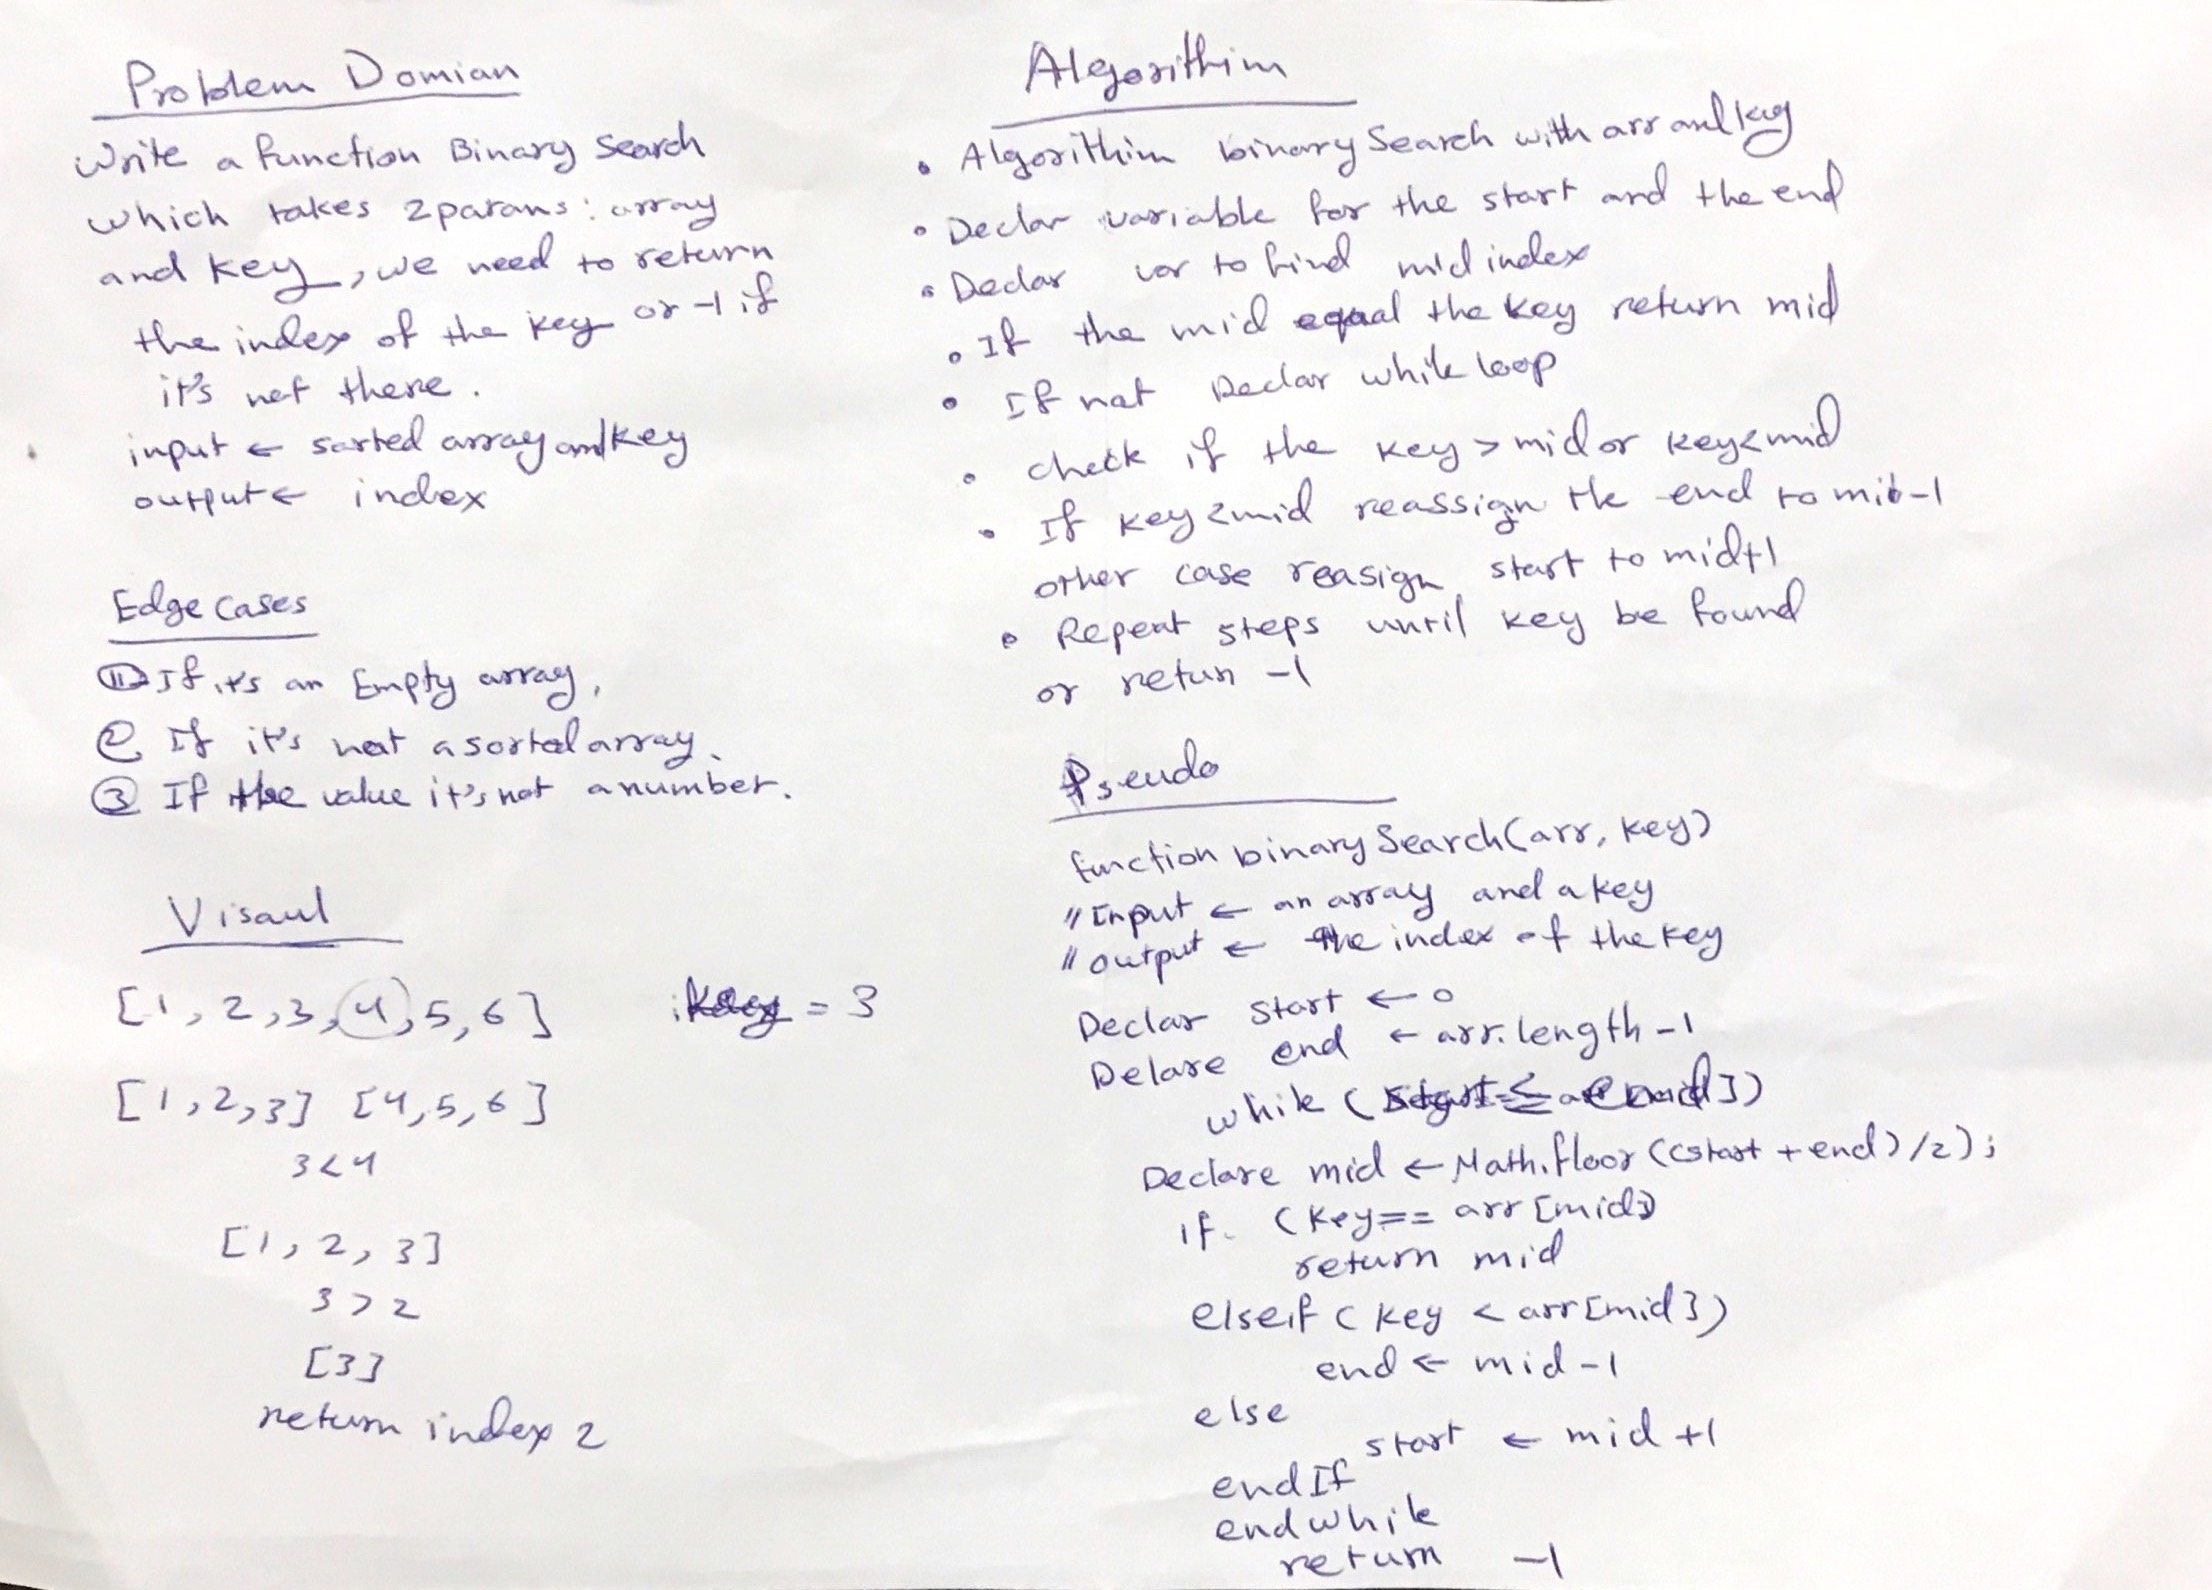 Problem Domian
Write a function Binary Search
which takes 2 params: array
and key, we need to return
the index of the key or -1 if
it's not there.
input ← sorted array and key
output ← index
Edge cases
① If it's an Empty array,
② If it's not a sorted array.
③ If the value it's not a number.
Visaul
[1, 2, 3, 4, 5, 6] key = 3
[1, 2, 3] [4, 5, 6]
3 < 4
[1, 2, 3]
3 > 2
[3]
return index 2
Algorithim
• Algorithim binary Search with arr and key
• Declar variable for the start and the end
• Declar var to find mid index
• If the mid equal the key return mid
• If not Declar while loop
• check if the key > mid or key < mid
• If key < mid reassign the end to mid-1
other case reasign start to mid+1
• Repeat steps until key be found
or retun -1
Pseudo
function binary Search(arr, key)
// Input ← an array and a key
// output ← the index of the key
Declar start ← 0
Delare end ← arr.length -1
while (start <= end)
Declare mid ← Math.floor ((start + end) /2);
if (key == arr [mid])
return mid
elseif ( key < arr[mid])
end ← mid -1
else
start ← mid +1
end If
end while
return -1